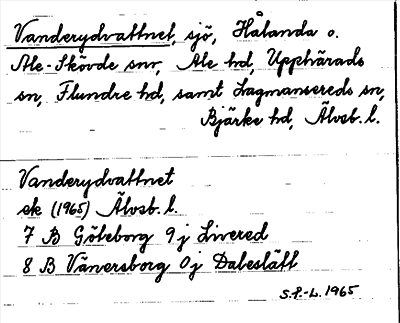 Vanderydvattnet, sjö, Hålanda o.
Ale-Skövde snr, Ale hd, Upphärads
sn, Flundre hd, samt Lagmansereds sn,
Bjärke hd, Älvsb. l.
Vanderydvattnet
ek (1965) Älvsb. l.
7 B Göteborg 9 j Livered
8 B Vänersborg 0 j Daleslätt
S.F.-L. 1965